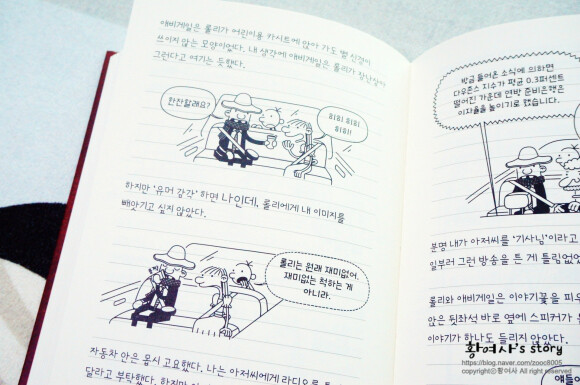 애비게일은 롤리가 어린이용 카시트에 앉아 가도 별 신경이
쓰이지 않는 모양이었다. 내 생각에 애비게일은 롤리가 장난삼아
그런다고 여기는 듯했다.
한잔할래요?
히히 히히
히히!
하지만 '유머 감각' 하면 나인데, 롤리에게 내 이미지를
빼앗기고 싶지 않았다.
롤리는 원래 재미없어.
재미없는 척하는 게
아니라.
자동차 안은 몹시 고요했다. 나는 아저씨에게 라디오를
방금 들어온 소식에 의하면
다우존스 지수가 평균 0.3퍼센트
떨어진 가운데 연방 준비은행은
이자율을 높이기로 했습니다.
분명 내가 아저씨를 '기사님'이라고
일부러 그런 방송을 튼 게 틀림없었
롤리와 애비게일은 이야기꽃을 피
앉은 뒷좌석 바로 옆에 스피커가
이야기가 하나도 들리지 않았다.
황여사's story
https://blog.naver.com/zooc8005
copyright ⓒ황여사 All right reserved